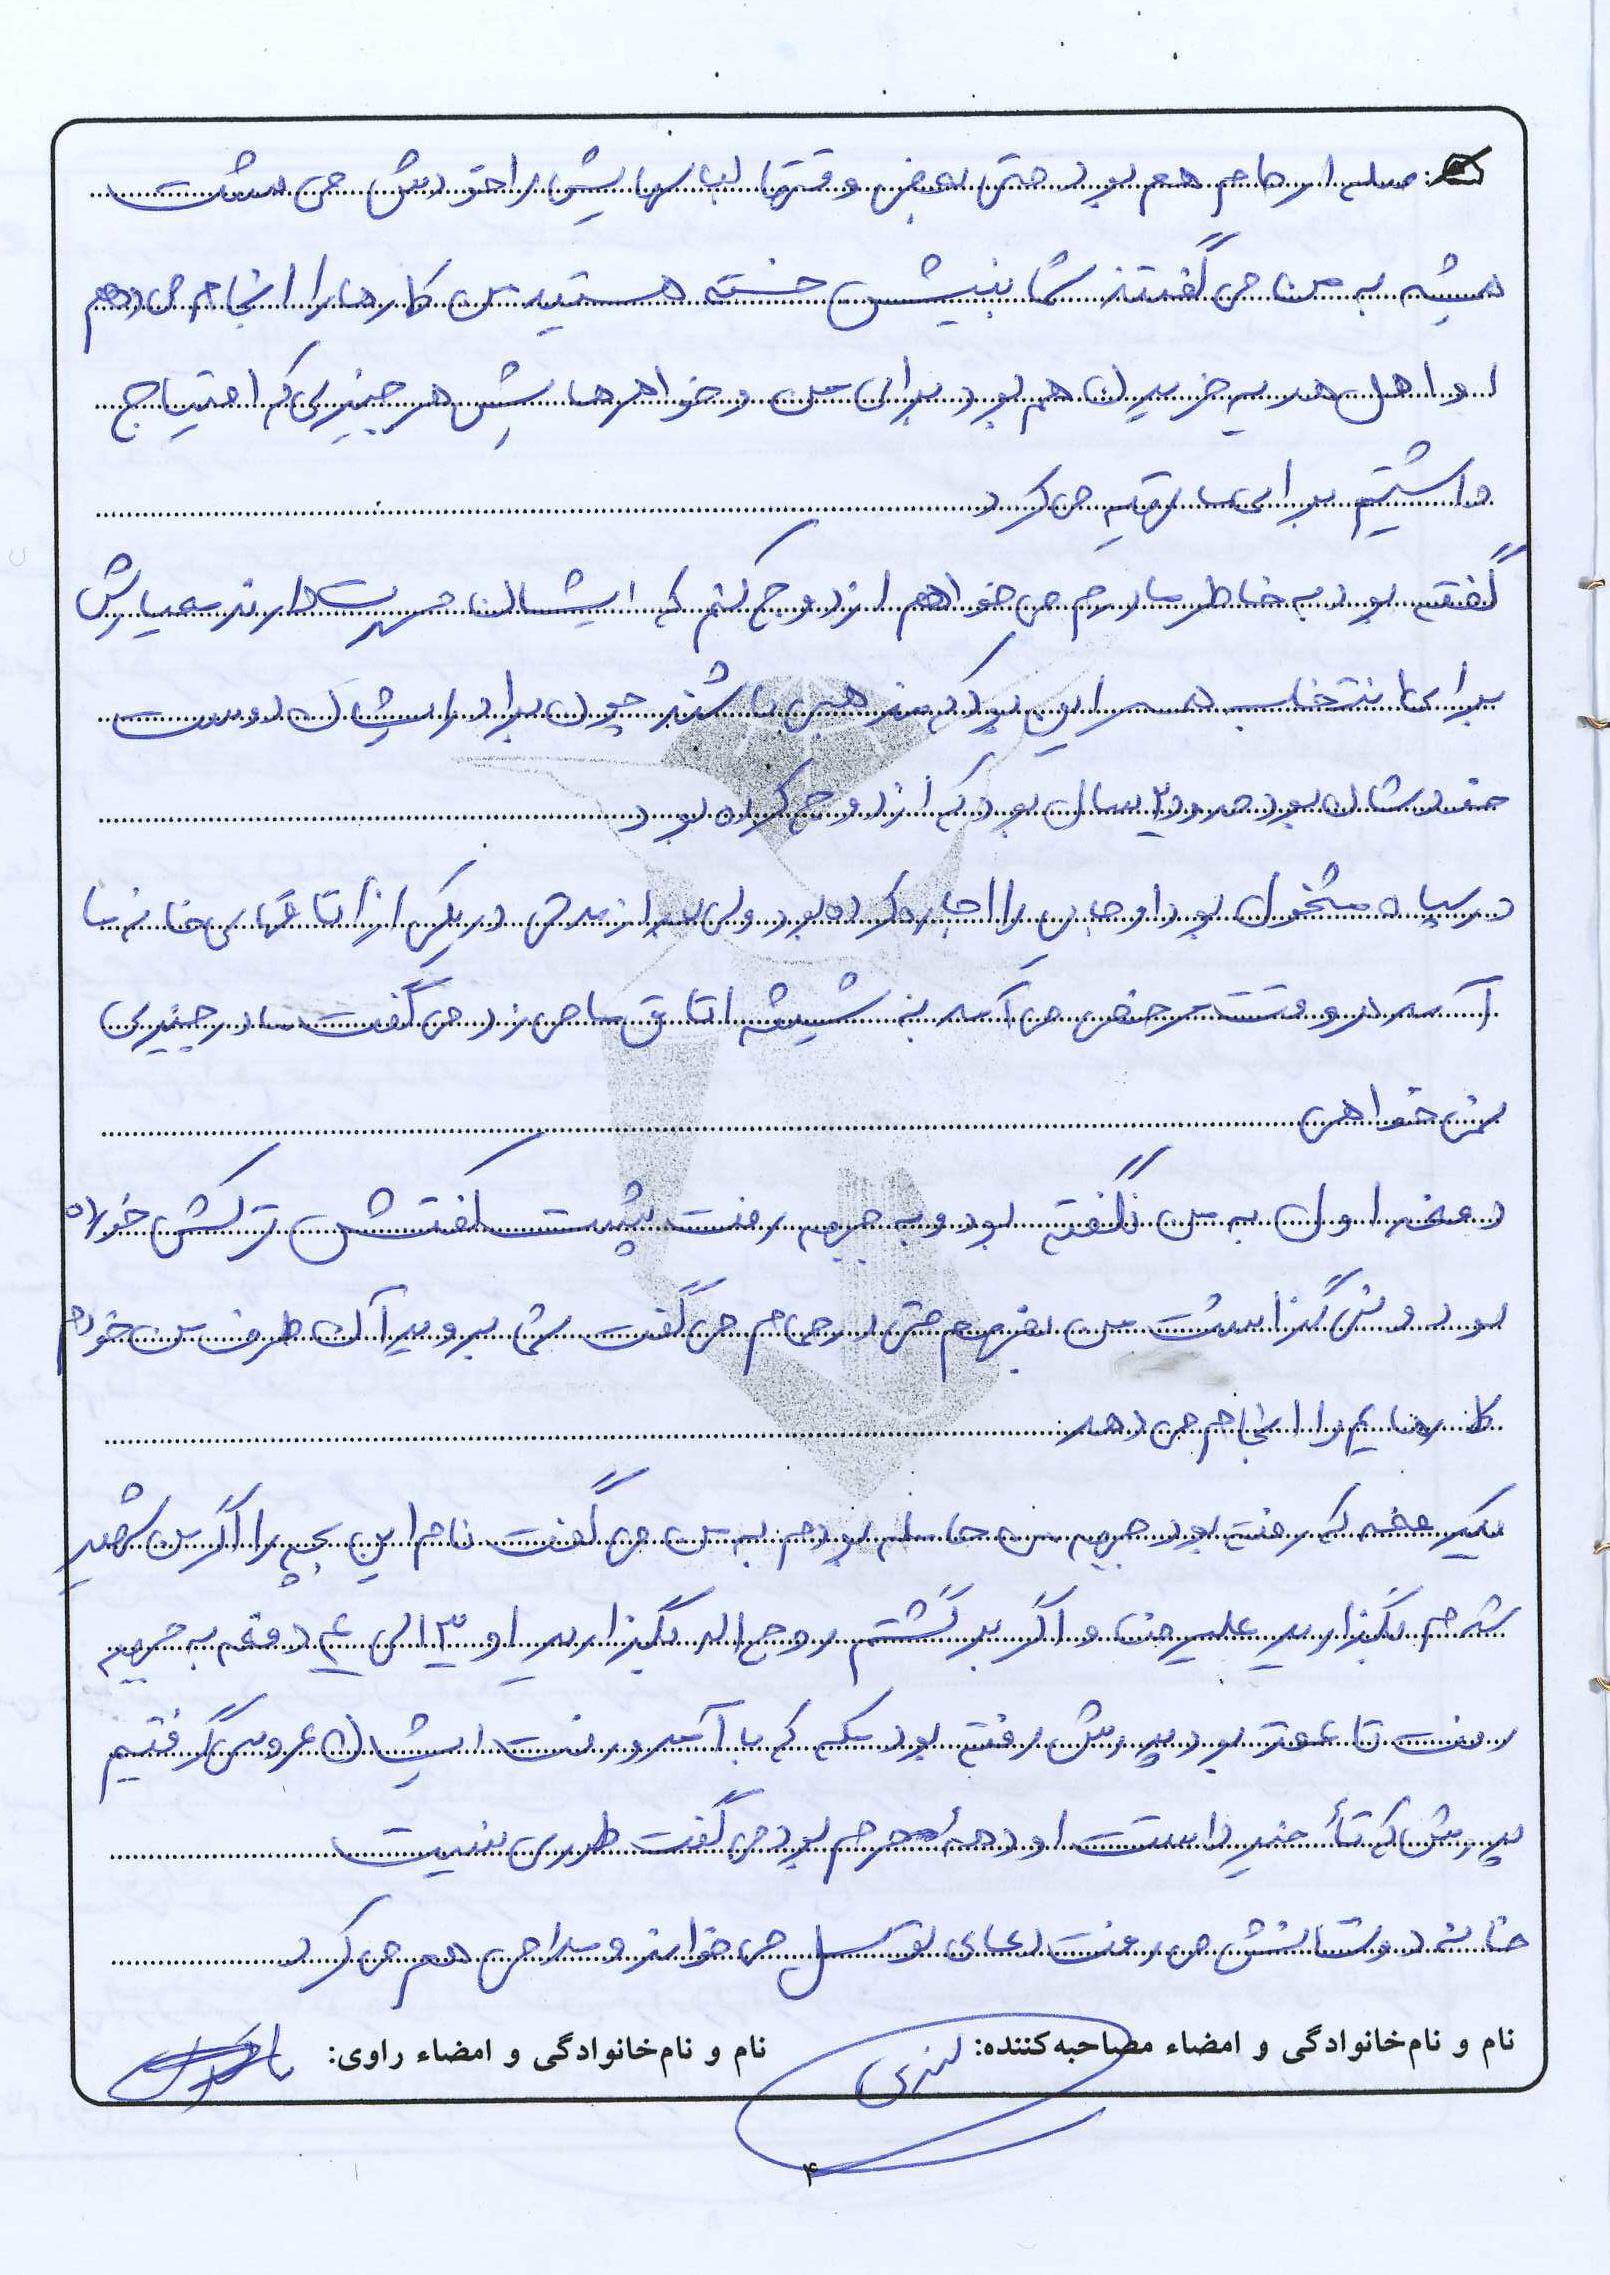 صله ارحام هم بود حتی بعضی وقتها لباسهایش را خودش می شست
همیشه به من می گفتند شما بنیشین خسته هستید من کارها را انجام می دهم
او اهل هدیه خریدن هم بود برای من و خواهرهایش هر چیزی که احتیاج
داشتیم برای ما تهیه می کرد
گفته بود به خاطر مادرم می خواهم ازدواج کنم که ایشان دارند معیارش
برای انتخاب همسر این بود که مذهبی باشند چون برادر ایشان دوست
خودشان بود حدود ۲ سال بود که ازدواج کرده بود
در سپاه مشغول بود او جایی را اجاره کرده بود ولی بعد از مدتی در یکی از اتاقهای خانه ما
آمد هر وقت مرخصی می آمد به شیشه اتاق ما می زد می گفت مادر چیزی
نمی خواهی
دفعه اول به من نگفته بود و به جبهه رفت پشت کفتش ترکش خورده
بود و نمی گذاشت من بفهمم حتی در حمام می گفت شما بروید آن طرف من خودم
کارهایم را انجام می دهد
یکبر دفعه که رفته بود جبهه من حامله بودم به من می گفت نام این بچه را اگر من شهید
شدم بگذارید علیرضا و اگر برگشتم روح اله بگذارید او ۳ الی ۴ دفعه به جبهه
رفت تا بود پدرش رفته بود مکه که با آمد و رفت ایشان عروسی گرفتیم
پدرش که تأخیر داشت او دههٔ محرم بود می گفت طوری نیست
خانه دوستانش می رفت دعای توسل می خواند و مداحی هم می کرد
نام و نام‌خانوادگی و امضاء مصاحبه‌کننده: نام و نام‌خانوادگی و امضاء راوی:
۴